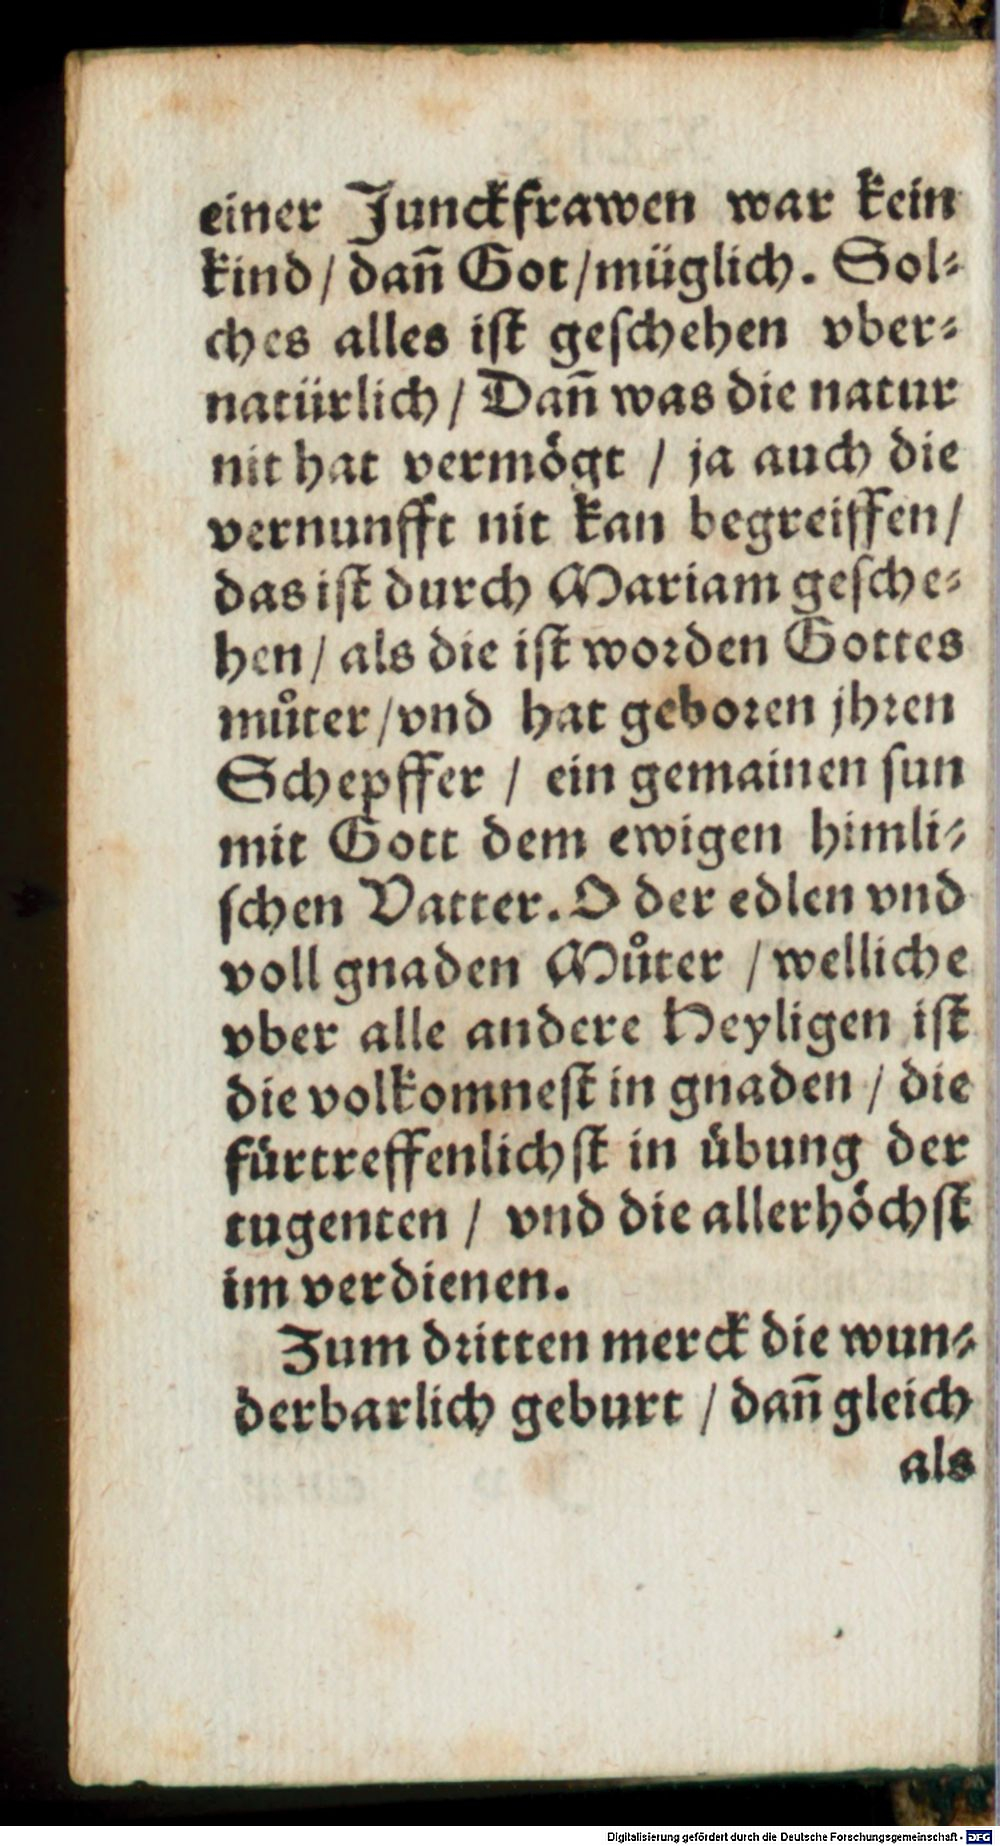 einer Junckfrawen war kein
kind / dañ Got / müglich. Sol⸗
ches alles ist geschehen vber⸗
natürlich / Dañ was die natur
nit hat vermögt / ja auch die
vernunfft nit kan begreiffen /
das ist durch Mariam gesche⸗
hen / als die ist worden Gottes
můter / vnd hat geboren jhren
Schepffer / ein gemainen sun
mit Gott dem ewigen himli⸗
schen Vatter. O der edlen vnd
voll gnaden Můter / welliche
vber alle andere Heyligen ist
die volkomnest in gnaden / die
fürtreffenlichst in übung der
tugenten / vnd die allerhöchst
im verdienen.
Zum dritten merck die wun⸗
derbarlich geburt / dañ gleich
als
Digitalisierung gefördert durch die Deutsche Forschungsgemeinschaft - DFG